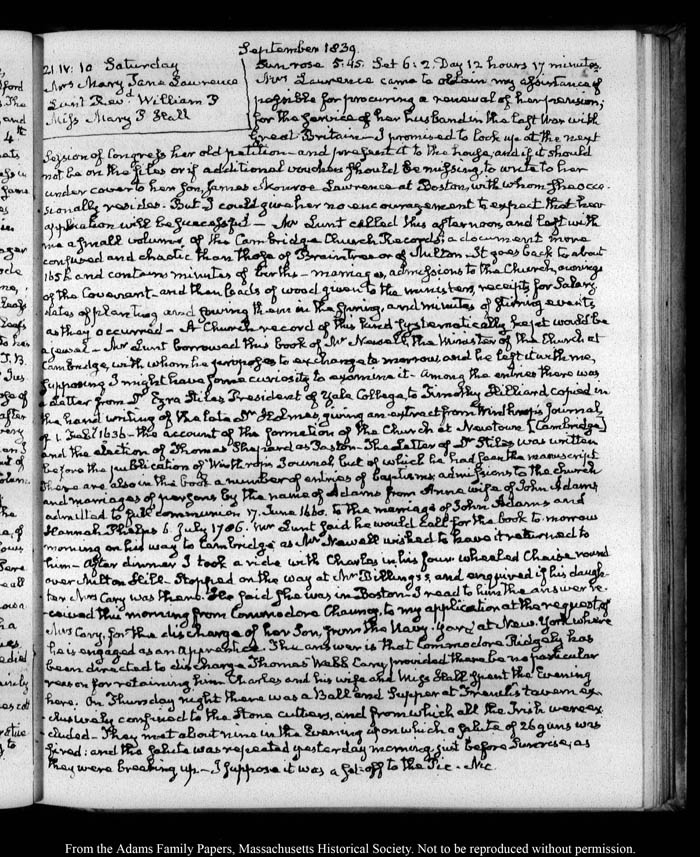 September 1839.
21. IV: 10 Saturday
Mrs Mary Jane Lawrence
Lunt Revd William P
Miss Mary P Hall
Sun rose 5:45. Set 6:2. Day 12 hours 17 minutes
Mrs Lawrence came to obtain my assistance if
possible for procuring a renewal of her pension;
for the service of her husband in the last War with
Great Britain—I promised to look up at the next
Session of Congress her old petition—and present it to the house, and if it should
not be on the files or if additional vouchers should be missing, to write to her
under cover to her Son, James Monroe Lawrence at Boston, with whom she occa
sionally resides. But I could give her no encouragement to expect that her
application will be successful—Mr Lunt called this afternoon, and left with
me a small volume, of the Cambridge Church Records; a document more
confused and chaotic than those of Braintree or of Milton—It goes back to about
165 and contains minutes of births—marriages, admissions to the Church, ownings
of the Covenant—and then loads of wood given to the ministers, receipts for Salary,
dates of planting and sowing them in the Spring, and minutes of stirring events
as they occurred—A Church record of this kind systematically kept would be
a jewel—Mr Lunt borrowed this book of Mr Newell, the Minister of the Church at
Cambridge, with whom he proposes to exchange to morrow, and he left it with me,
supposing I might have some curiosity to examine it—Among the entries there was
a Letter from Dr Ezra Stiles President of Yale College, to Timothy Hilliard copied in
the hand writing of the late Dr Holmes, giving an extract from Winthrop's Journal,
of 1. Feby 1636—the account of the formation of the Church at Newtown [Cambridge]
and the election of Thomas Shepard as Pastor—The Letter of Dr Stiles was written
before the publication of Winthrop's Journal, but of which he had seen the manuscript
There are also in the book a number of entries of baptisms, admissions to the Church
and marriages of persons by the name of Adams from Anne wife of John Adams
admitted to full communion 17. June 1660. to the marriage of John Adams and
Hannah Phelps 6. July 1706. Mr Lunt said he would call for the book to-morrow
morning on his way to Cambridge as Mr Newell wished to have it returned to
him—After dinner I took a ride with Charles in his four wheeled Chaise round
over Milton Hill—Stopped on the way at Mr Billings's, and enquired if his daugh-
ter Mrs Cary was there. He said she was in Boston—I read to him the answer re-
ceived this morning from Commodore Chauncy, to my application at the request of
Mrs Cary, for the discharge of her Son, from the Navy-Yard at New-York where
he is engaged as an Apprentice. The answer is that Commodore Ridgely has
been directed to discharge Thomas Webb Cary provided there be no particular
reason for retaining him. Charles and his wife and Miss Hall spent the Evening
here. On Thursday night there was a Ball and Supper at French's tavern ex
clusively confined to the Stone cutters, and from which all the Irish were ex
cluded—They met about nine in the Evening upon which a salute of 26 guns was
fired: and the salute was repeated yesterday morning, just before Sunrise, as
they were breaking up—I suppose it was a set-off to the Pic-Nic.
From the Adams Family Papers, Massachusetts Historical Society. Not to be reproduced without permission.